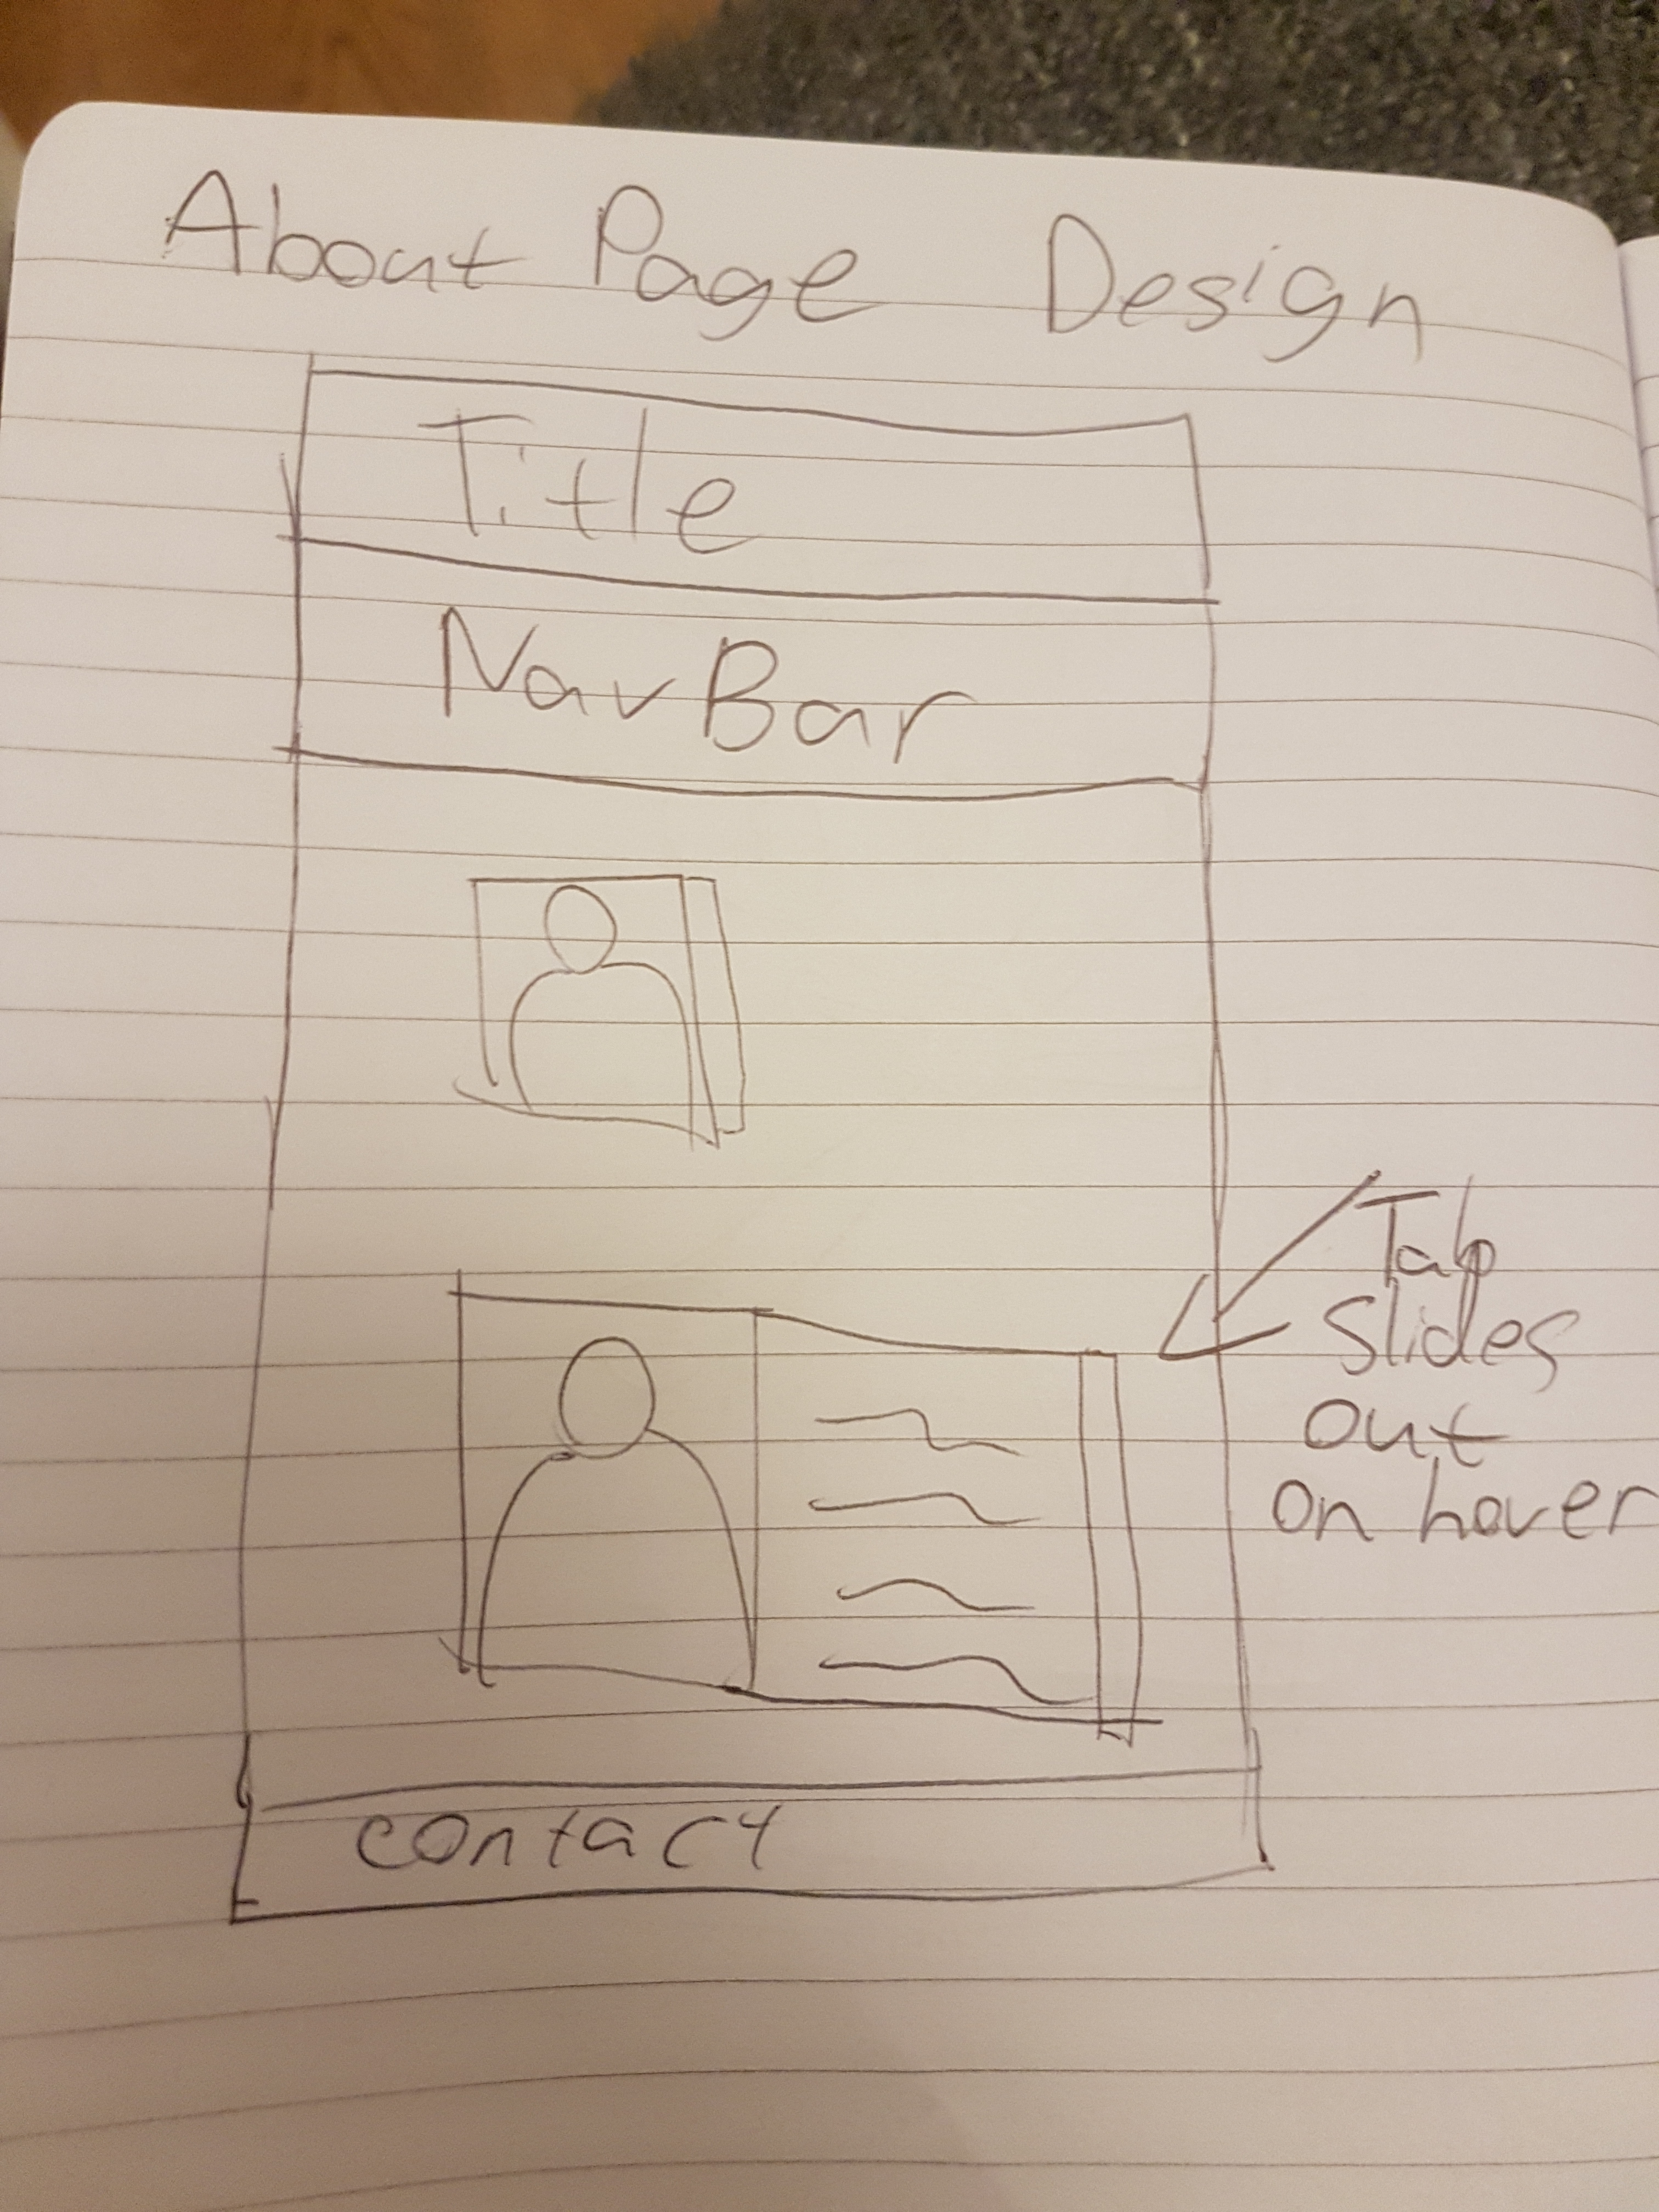 About Page Design
Title
NavBar
Tab
slides
out
on hover
contact